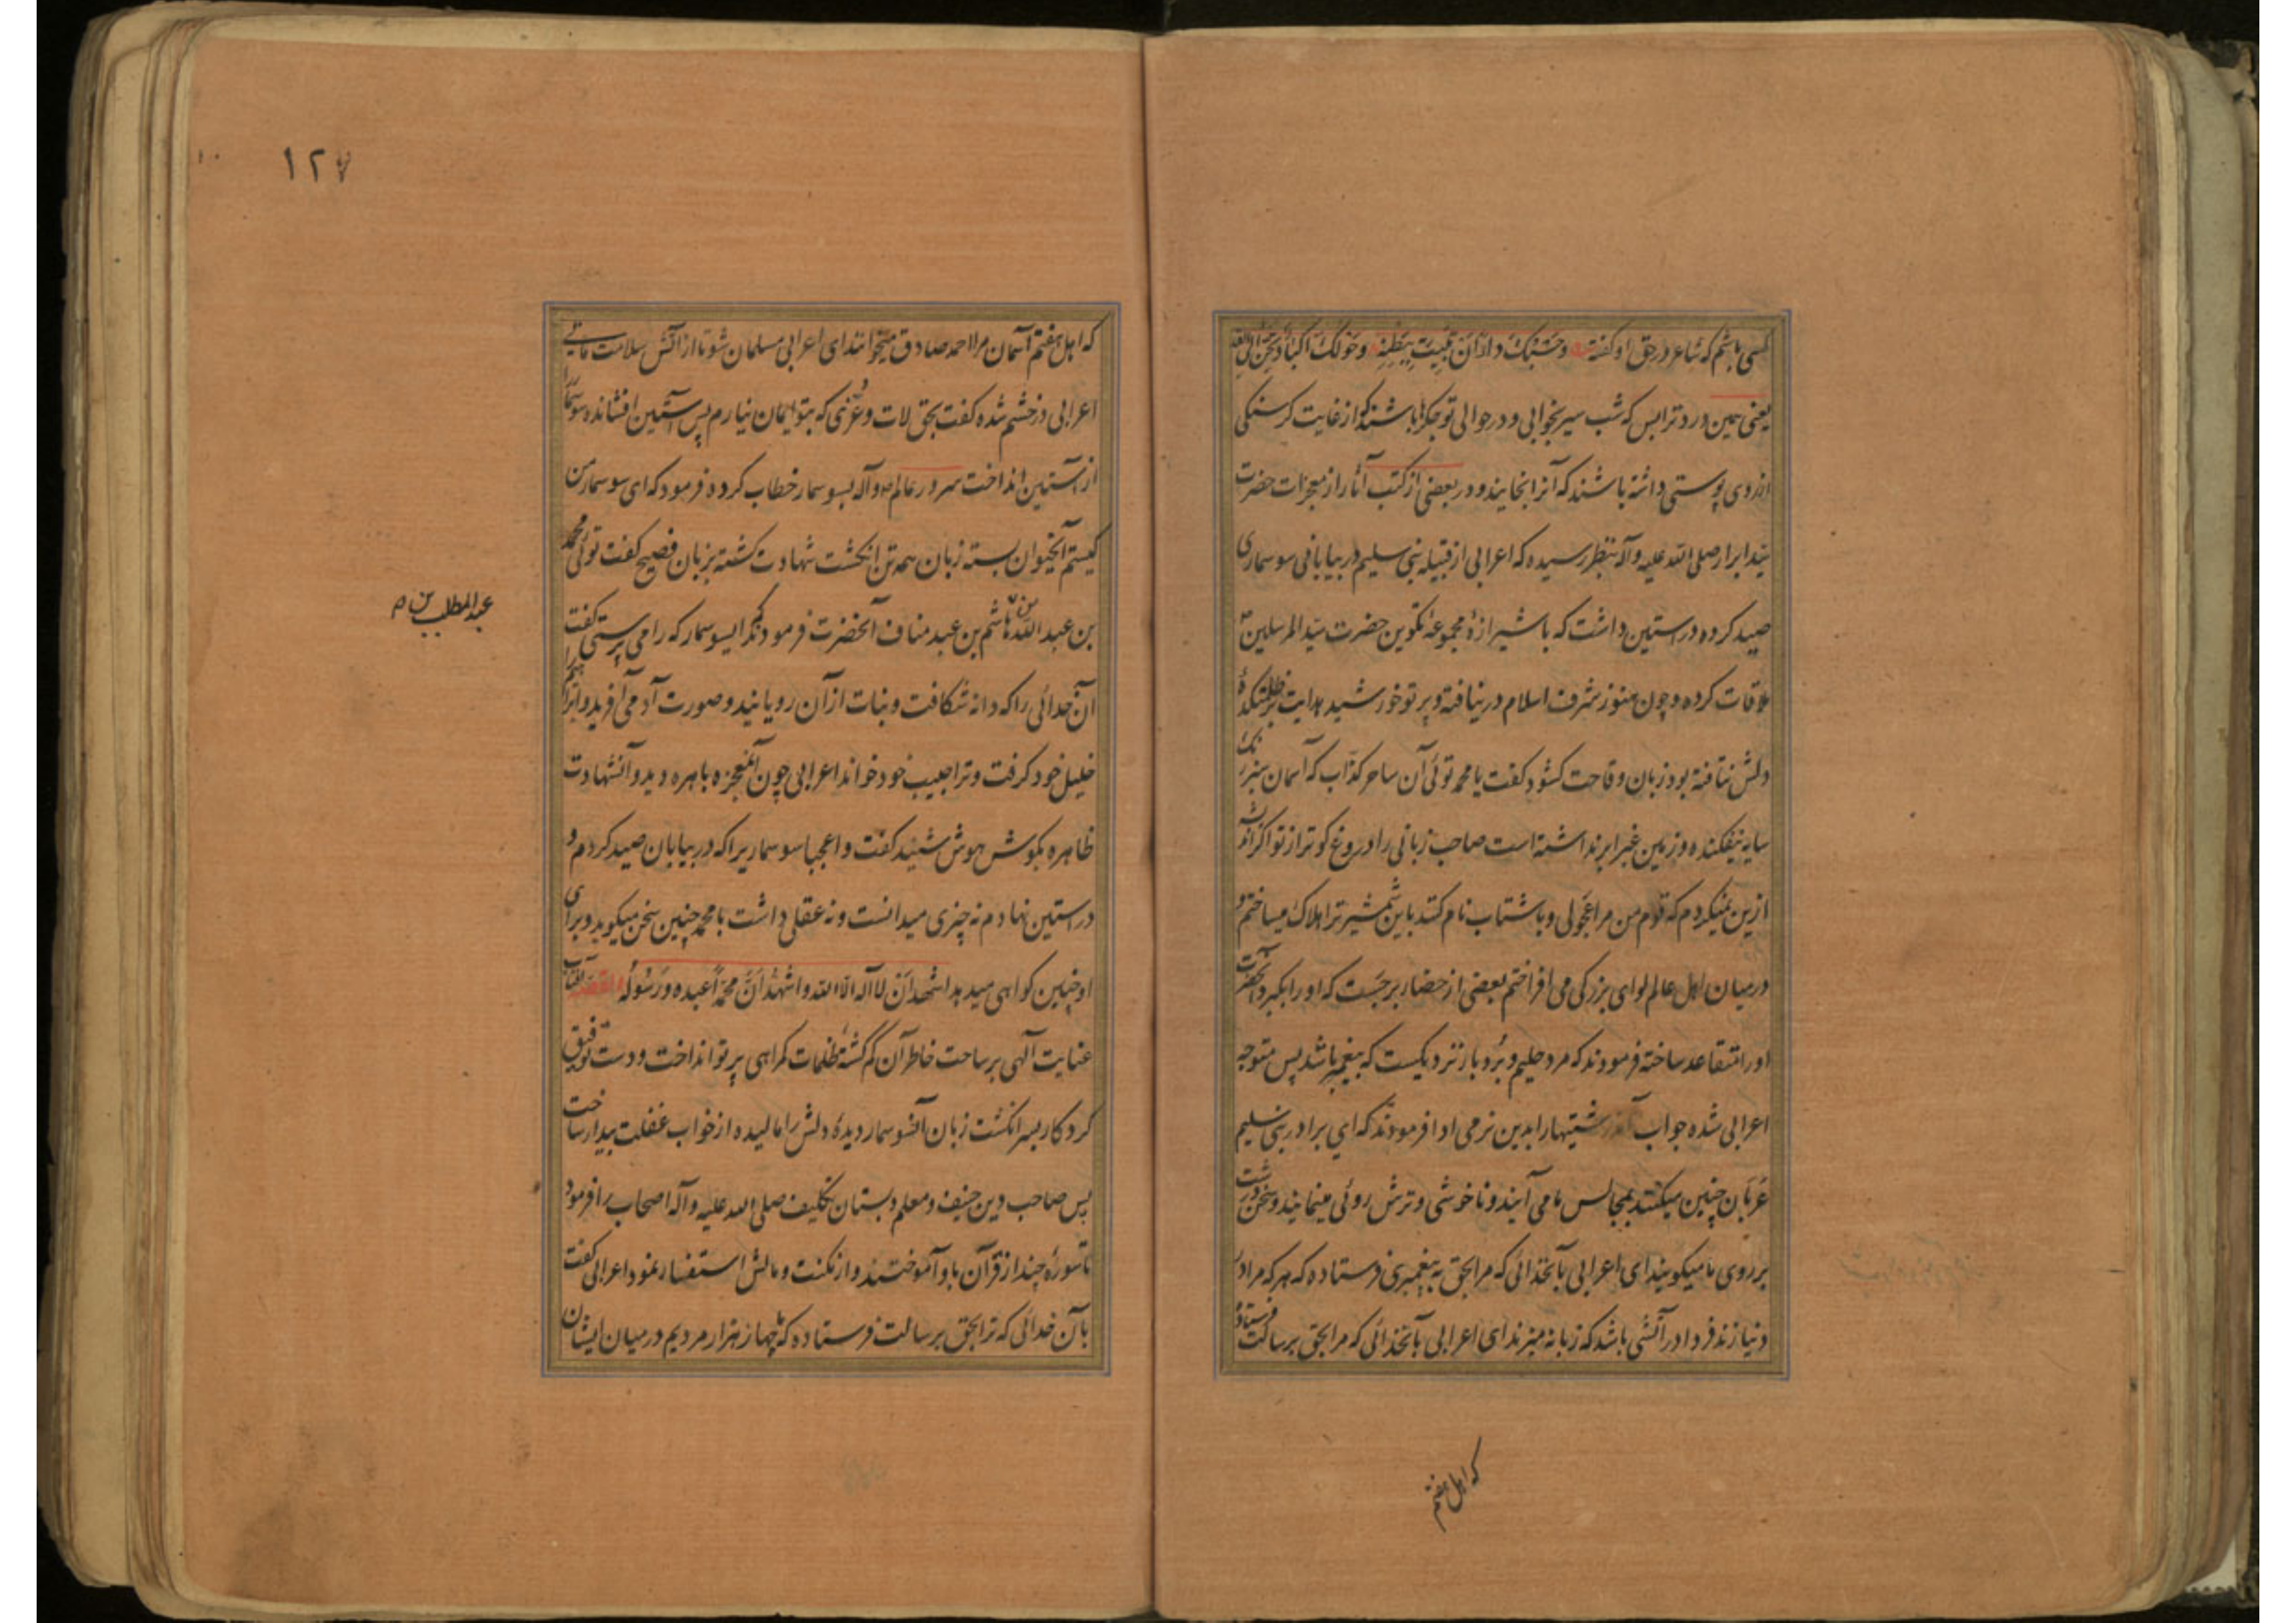 کسی باشم که شاعر در حق او گفته وحسبک داء ان تبیت ببطنة وحولک اکباد تحن الی القد
یعنی همین درد ترا بس که شب سیر بخوابی و در حوالی تو جکرها باشند که از غایت کرسنکی
ارزوی پوستی داشته باشند که آنرا بخایند و در بعضی از کتب آثار از معجزات حضرت
سید ابرار صلی الله علیه وآله بنظر رسیده که اعرابی از قبیله بنی سلیم در بیابانی سوسماری
صید کرده در آستین داشت که با شیرازهٔ مجموعهٔ تکوین حضرت سید المرسلین ص
ملاقات کرده و چون هنوز شرف اسلام در نیافته و پرتو خورشید هدایت بر ظلمتکدهٔ
دلش نتافته بود زبان وقاحت کشود کفت یا محمد توئی آن ساحر کذّاب که آسمان سبز رنک
سایه نیفکنده و زمین غبرا بر نداشته است صاحب زبانی را دروغ کوتر از تو اکر نه
ازین میکردم که قوم من مرا عجولی و با شتاب نام کنند باین شمشیر ترا هلاک میساختم و
در میان اهل عالم لوای بزرکی می افراختم بعضی از حضار برجست که او را بگیرد آنحضرت
او را متقاعد ساخته فرمودند که مرد حلیم و بردبار نزدیکست که پیغمبر باشد پس متوجه
اعرابی شده جواب آن درشتیها را بدین نرمی ادا فرمودند که ای برادر بنی سلیم
عربان چنین میکنند بمجالس ما می آیند و ناخوشی و ترش روئی مینمایند و سخن درشت
بر روی ما میکویند ای اعرابی بآنخدائی که مرا بحق به پیغمبری فرستاده که هر که مرا در
دنیا زند فردا در آتشی باشد که زبانه میزند ای اعرابی بآنخدائی که مرا بحق برسالت فرستاده
که اهل هفتم
۱۲۷
که اهل هفتم آسمان مرا احمد صادق میخوانند ای اعرابی مسلمان شو تا از آتش سلامت مانی
اعرابی در خشم شده کفت بحق لات و عُزی که بتو ایمان نیارم پس آستین افشانده سوسمار را
از آستین انداخت سرور عالم ص وآله بسوسمار خطاب کرده فرمود که ای سوسمار من
کیستم آنحیوان بسته زبان همه تن انکشت شهادت کشته بزبان فصیح کفت توئی محمد
بن عبد الله بن هاشم بن عبد مناف آنحضرت فرمودند که ایسوسمار که را می پرستی کفت
عبد المطلب بن
آن خدائی را که دانه شکافت و نبات از آن رویانید و صورت آدمی آفرید و ابراهیم را
خلیل خود کرفت و ترا حبیب خود خواند اعرابی چون آنمعجزه باهره دید و آنشهادت
ظاهره بکوش هوش شنید کفت واعجبا سوسماریرا که در بیابان صید کردم و
در آستین نهادم نه چیزی میدانست و نه عقلی داشت با محمد چنین سخن میکوید و برای
او چنین کواهی میدهد اشهد ان لا اله الا الله و اشهد ان محمداً عبده و رسوله القصه آفتاب
عنایت آلهی بر ساحت خاطر آن کم کشتهٔ ظلمات کمراهی پرتو انداخت و دست توفیق
کردکار بسر انکشت زبان آنسوسمار دیدهٔ دلش را مالیده از خواب غفلت بیدار ساخت
پس صاحب دین حنیف و معلم دبستان تکلیف صلی الله علیه وآله اصحاب را فرمود
تا سورهٔ چند از قرآن باو آموختند و از مکنت و مالش استفسار نمود اعرابی کفت
بآن خدائی که ترا بحق برسالت فرستاده که ما چهار هزار مردیم در میان ایشان